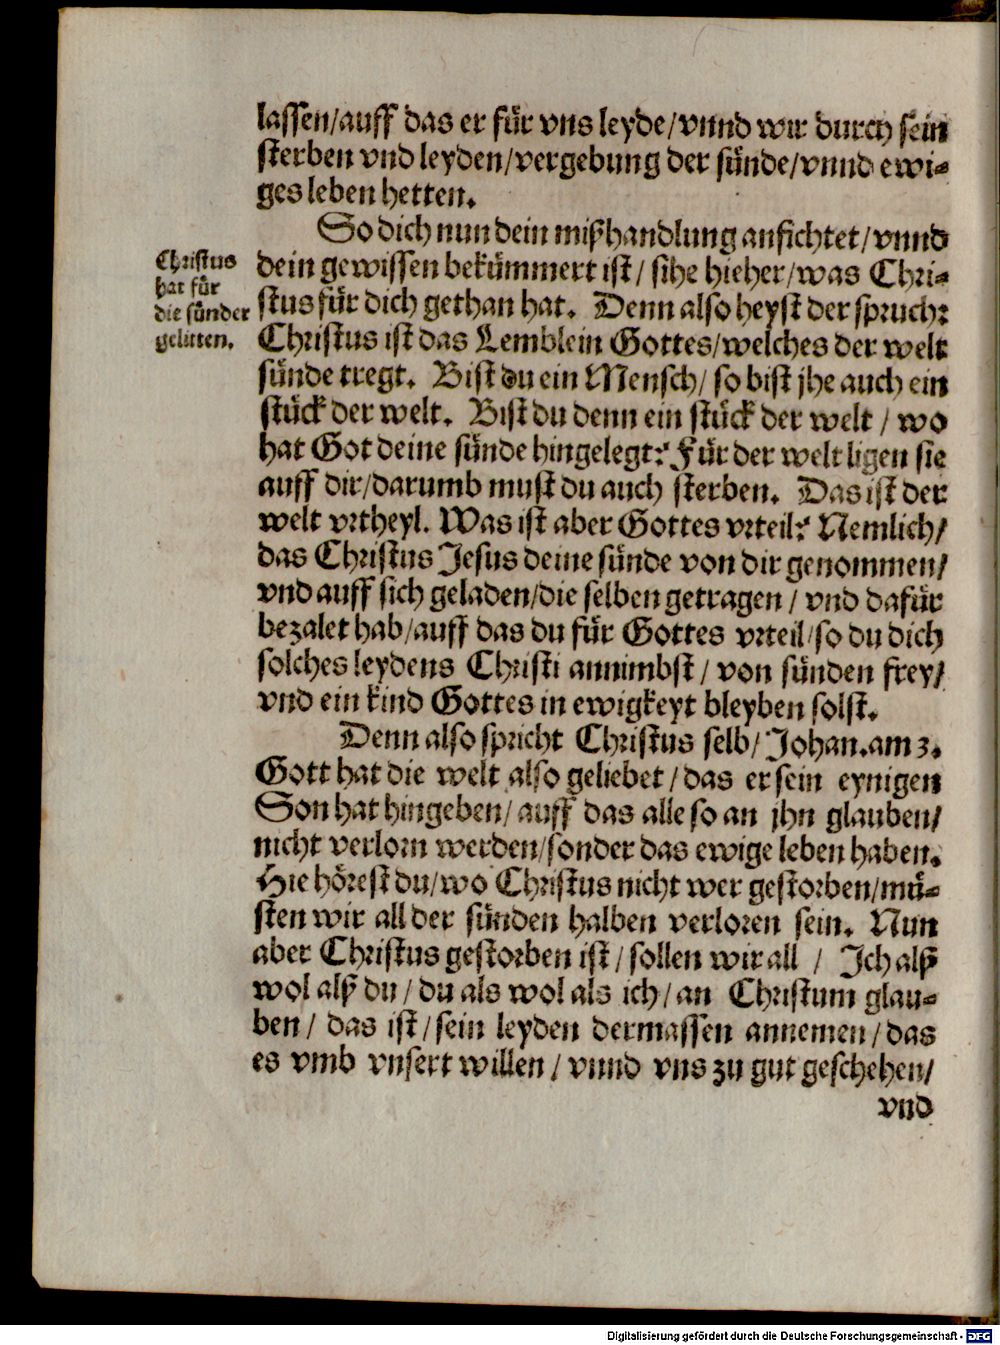 lassen/auff das er für vns leyde/vnnd wir durch sein
sterben vnd leyden/vergebung der sünde/vnnd ewi-
ges leben hetten.
So dich nun dein mißhandlung anfichtet/vnnd
Christus
hat für
die sünder
gelitten.
dein gewissen bekümmert ist/ sihe hieher/was Chri-
stus für dich gethan hat. Denn also heyst der spruch:
Christus ist das Lemblein Gottes/welches der welt
sünde tregt. Bist du ein Mensch/ so bist jhe auch ein
stück der welt. Bist du denn ein stück der welt / wo
hat Got deine sünde hingelegt? Für der welt ligen sie
auff dir/darumb must du auch sterben. Das ist der
welt vrtheyl. Was ist aber Gottes vrteil? Nemlich/
das Christus Jesus deine sünde von dir genommen/
vnd auff sich geladen/die selben getragen / vnd dafür
bezalet hab/auff das du für Gottes vrteil/so du dich
solches leydens Christi annimbst / von sünden frey/
vnd ein kind Gottes in ewigkeyt bleyben solst.
Denn also spricht Christus selb/ Johan.am 3.
Gott hat die welt also geliebet / das er sein eynigen
Son hat hingeben/ auff das alle so an jhn glauben/
nicht verlorn werden/sonder das ewige leben haben.
Hie hörest du/wo Christus nicht wer gestorben/mü-
sten wir all der sünden halben verloren sein. Nun
aber Christus gestorben ist / sollen wir all / Ich alß
wol alß du / du als wol als ich/ an Christum glau-
ben / das ist / sein leyden dermassen annemen / das
es vmb vnsert willen / vnnd vns zu gut geschehen/
vnd
Digitalisierung gefördert durch die Deutsche Forschungsgemeinschaft - DFG